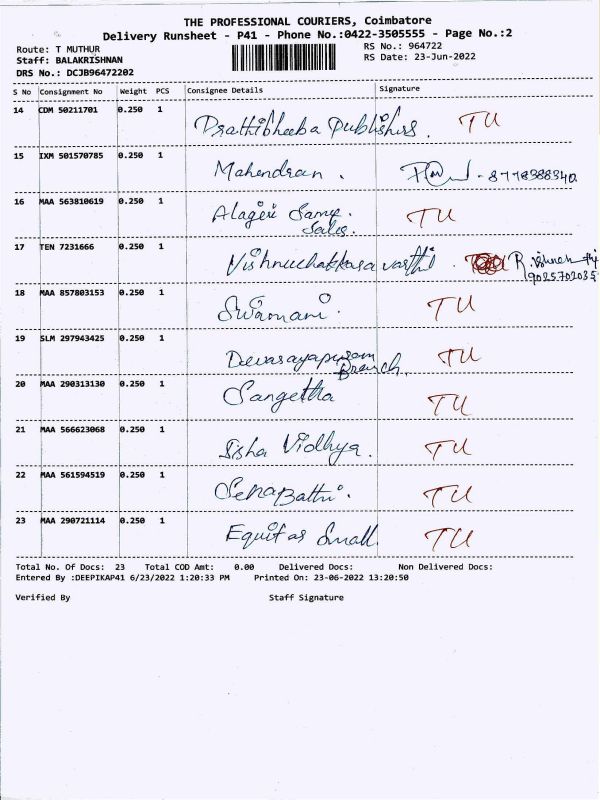 THE PROFESSIONAL COURIERS, Coimbatore
Delivery Runsheet - P41 - Phone No.:0422-3505555 - Page No.:2
Route: T MUTHUR RS No.: 964722
Staff: BALAKRISHNAN RS Date: 23-Jun-2022
DRS No.: DCJB96472202
S No Consignment No Weight PCS Consignee Details Signature
14 CDM 50211701 0.250 1 Prathibheeba Publishers. TU
15 IXM 501570785 0.250 1 Mahendran. - 8778388340
16 MAA 563810619 0.250 1 Alageri Samy. TU
Sales.
17 TEN 7231666 0.250 1 Vishnuchakkaravarthi. R.
9025702035
18 MAA 857803153 0.250 1 Swarnani. TU
19 SLM 297943425 0.250 1 Devarayapuram TU
Branch.
20 MAA 290313130 0.250 1 Sangetha TU
21 MAA 566623068 0.250 1 Sisha Vidhya. TU
22 MAA 561594519 0.250 1 Senapathi. TU
23 MAA 290721114 0.250 1 Equitas Small TU
Total No. Of Docs: 23 Total COD Amt: 0.00 Delivered Docs: Non Delivered Docs:
Entered By :DEEPIKAP41 6/23/2022 1:20:33 PM Printed On: 23-06-2022 13:20:50
Verified By Staff Signature